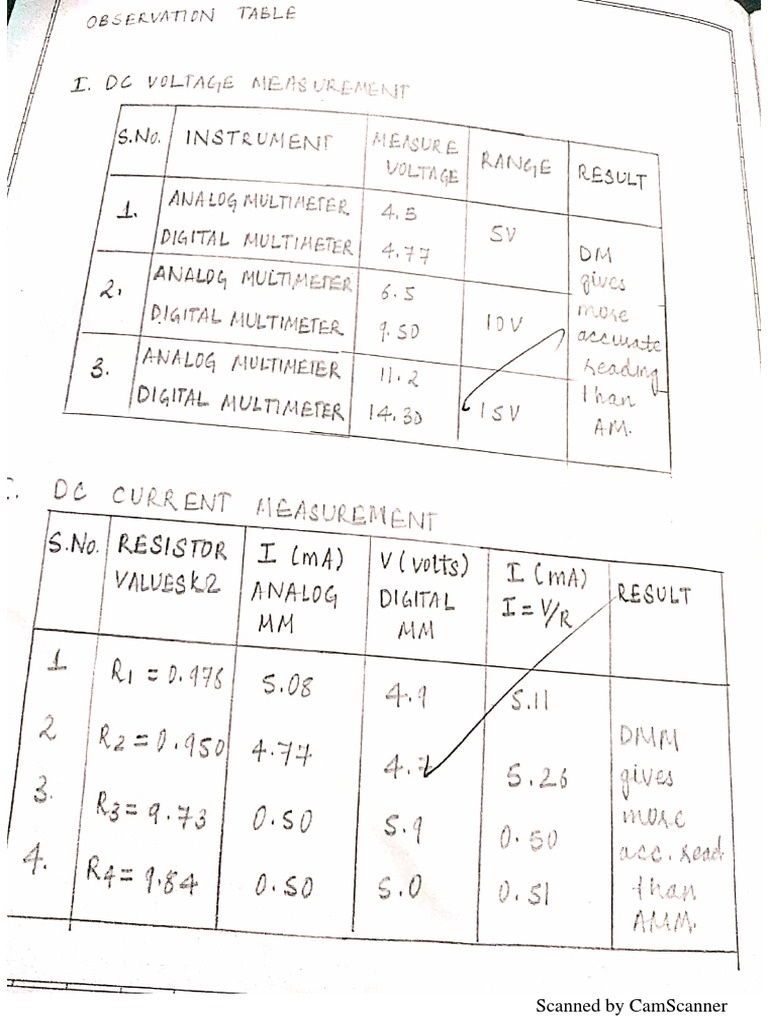 OBSERVATION TABLE
I. DC VOLTAGE MEASUREMENT
S.No. INSTRUMENT MEASURE VOLTAGE RANGE RESULT
1. ANALOG MULTIMETER 4.5 5V
DIGITAL MULTIMETER 4.77
2. ANALOG MULTIMETER 6.5 10V
DIGITAL MULTIMETER 9.50
3. ANALOG MULTIMETER 11.2 15V
DIGITAL MULTIMETER 14.30
DM
gives
more
accurate
reading
than
AM.
DC CURRENT MEASUREMENT
S.No. RESISTOR I (mA) V (volts) I (mA) RESULT
VALUES ANALOG DIGITAL I = V/R
MM MM
1 5.08 4.9 5.11
2 R2 = 0.950 4.77 5.26
3. R3 = 9.73 0.50 5.9 0.50
4. R4 = 9.84 0.50 5.0 0.51
DMM
gives
more
acc. read
than
AMM.
Scanned by CamScanner